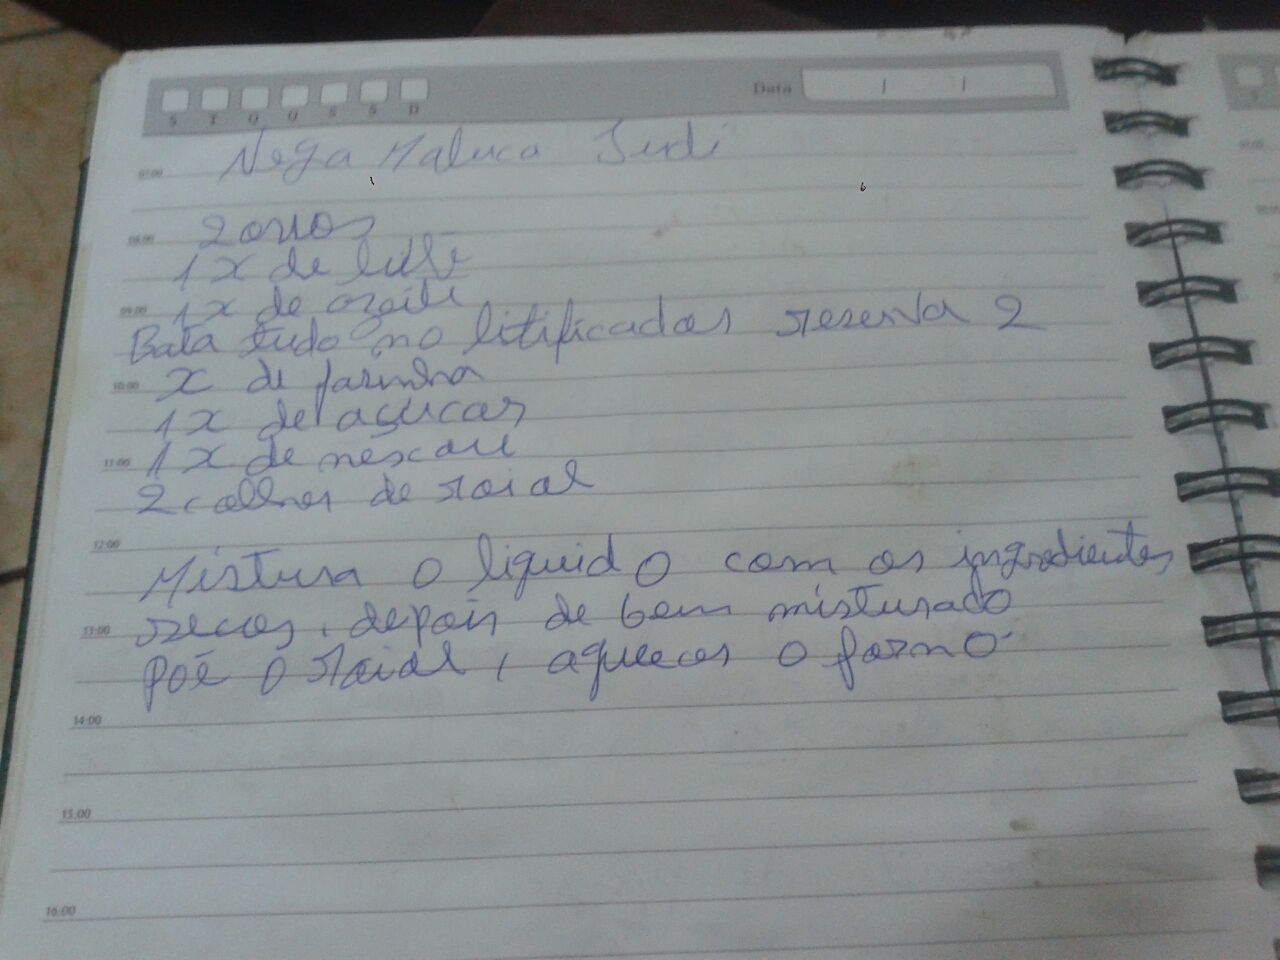 S T Q Q S S D
Data / /
Nega Maluca Judi
07:00
2 ovos
08:00
1 x de leite
1 x de azeite
09:00
Bata tudo no litificador reserva 2
x de farinha
10:00
1 x de açucar
1 x de nescau
11:00
2 colher de roial
12:00
Mistura o liquido com os ingredientes
secos, depois de bem misturado
13:00
põe o roial, aquecer o forno.
14:00
15:00
16:00